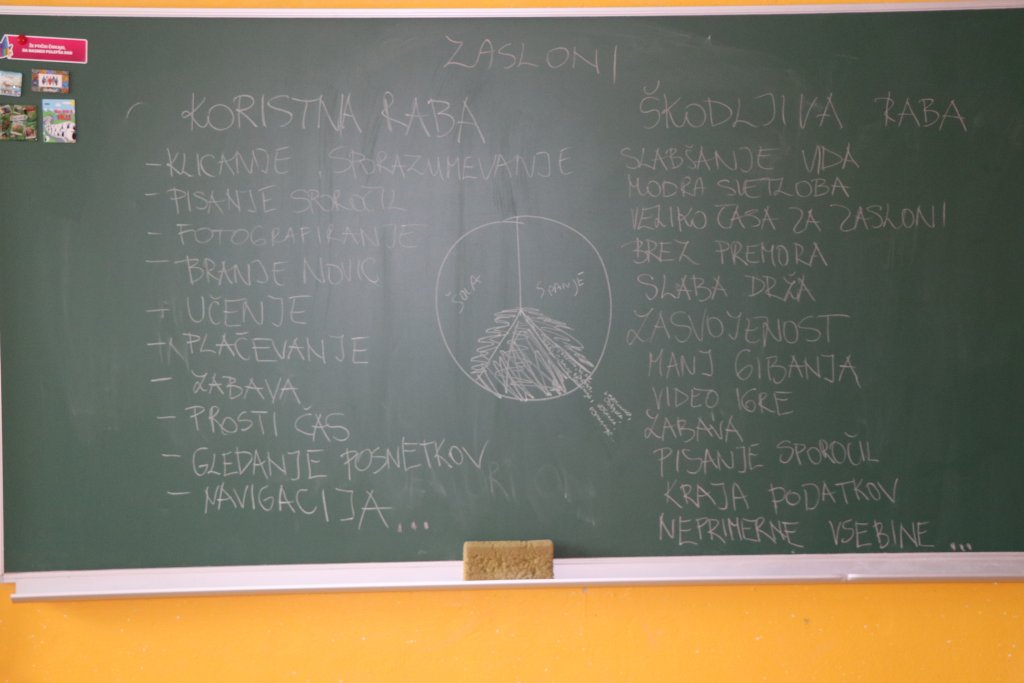 ZASLONI
KORISTNA RABA
- KLICANJE, SPORAZUMEVANJE
- PISANJE SPOROČIL
- FOTOGRAFIRANJE
- BRANJE NOVIC
- UČENJE
- PLAČEVANJE
- ZABAVA
- PROSTI ČAS
- GLEDANJE POSNETKOV
- NAVIGACIJA...
ŠOLA
SPANJE
ŠKODLJIVA RABA
SLABŠANJE VIDA
MODRA SVETLOBA
VELIKO ČASA ZA ZASLONI
BREZ PREMORA
SLABA DRŽA
ZASVOJENOST
MANJ GIBANJA
VIDEO IGRE
ZABAVA
PISANJE SPOROČIL
KRAJA PODATKOV
NEPRIMERNE VSEBINE...